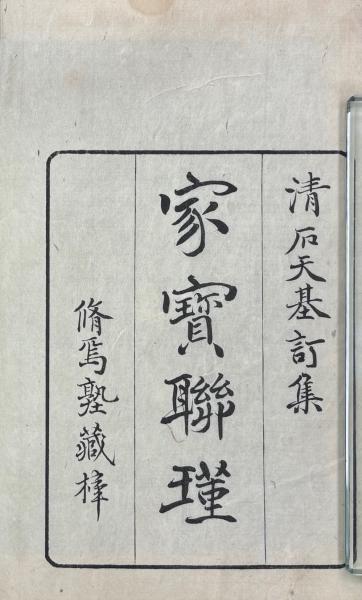 清石天基訂集
家寶聯瑾
脩焉塾藏梓